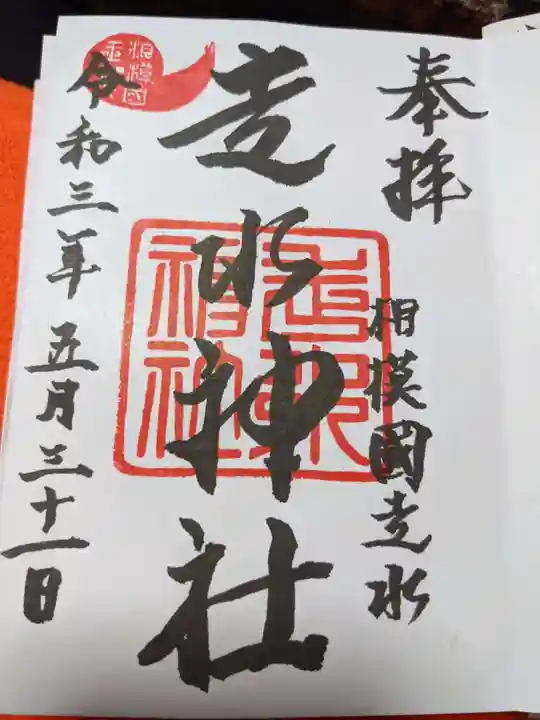 奉拝
相模國走水
走水神社
令和三年五月三十一日
走水
神社
相模國